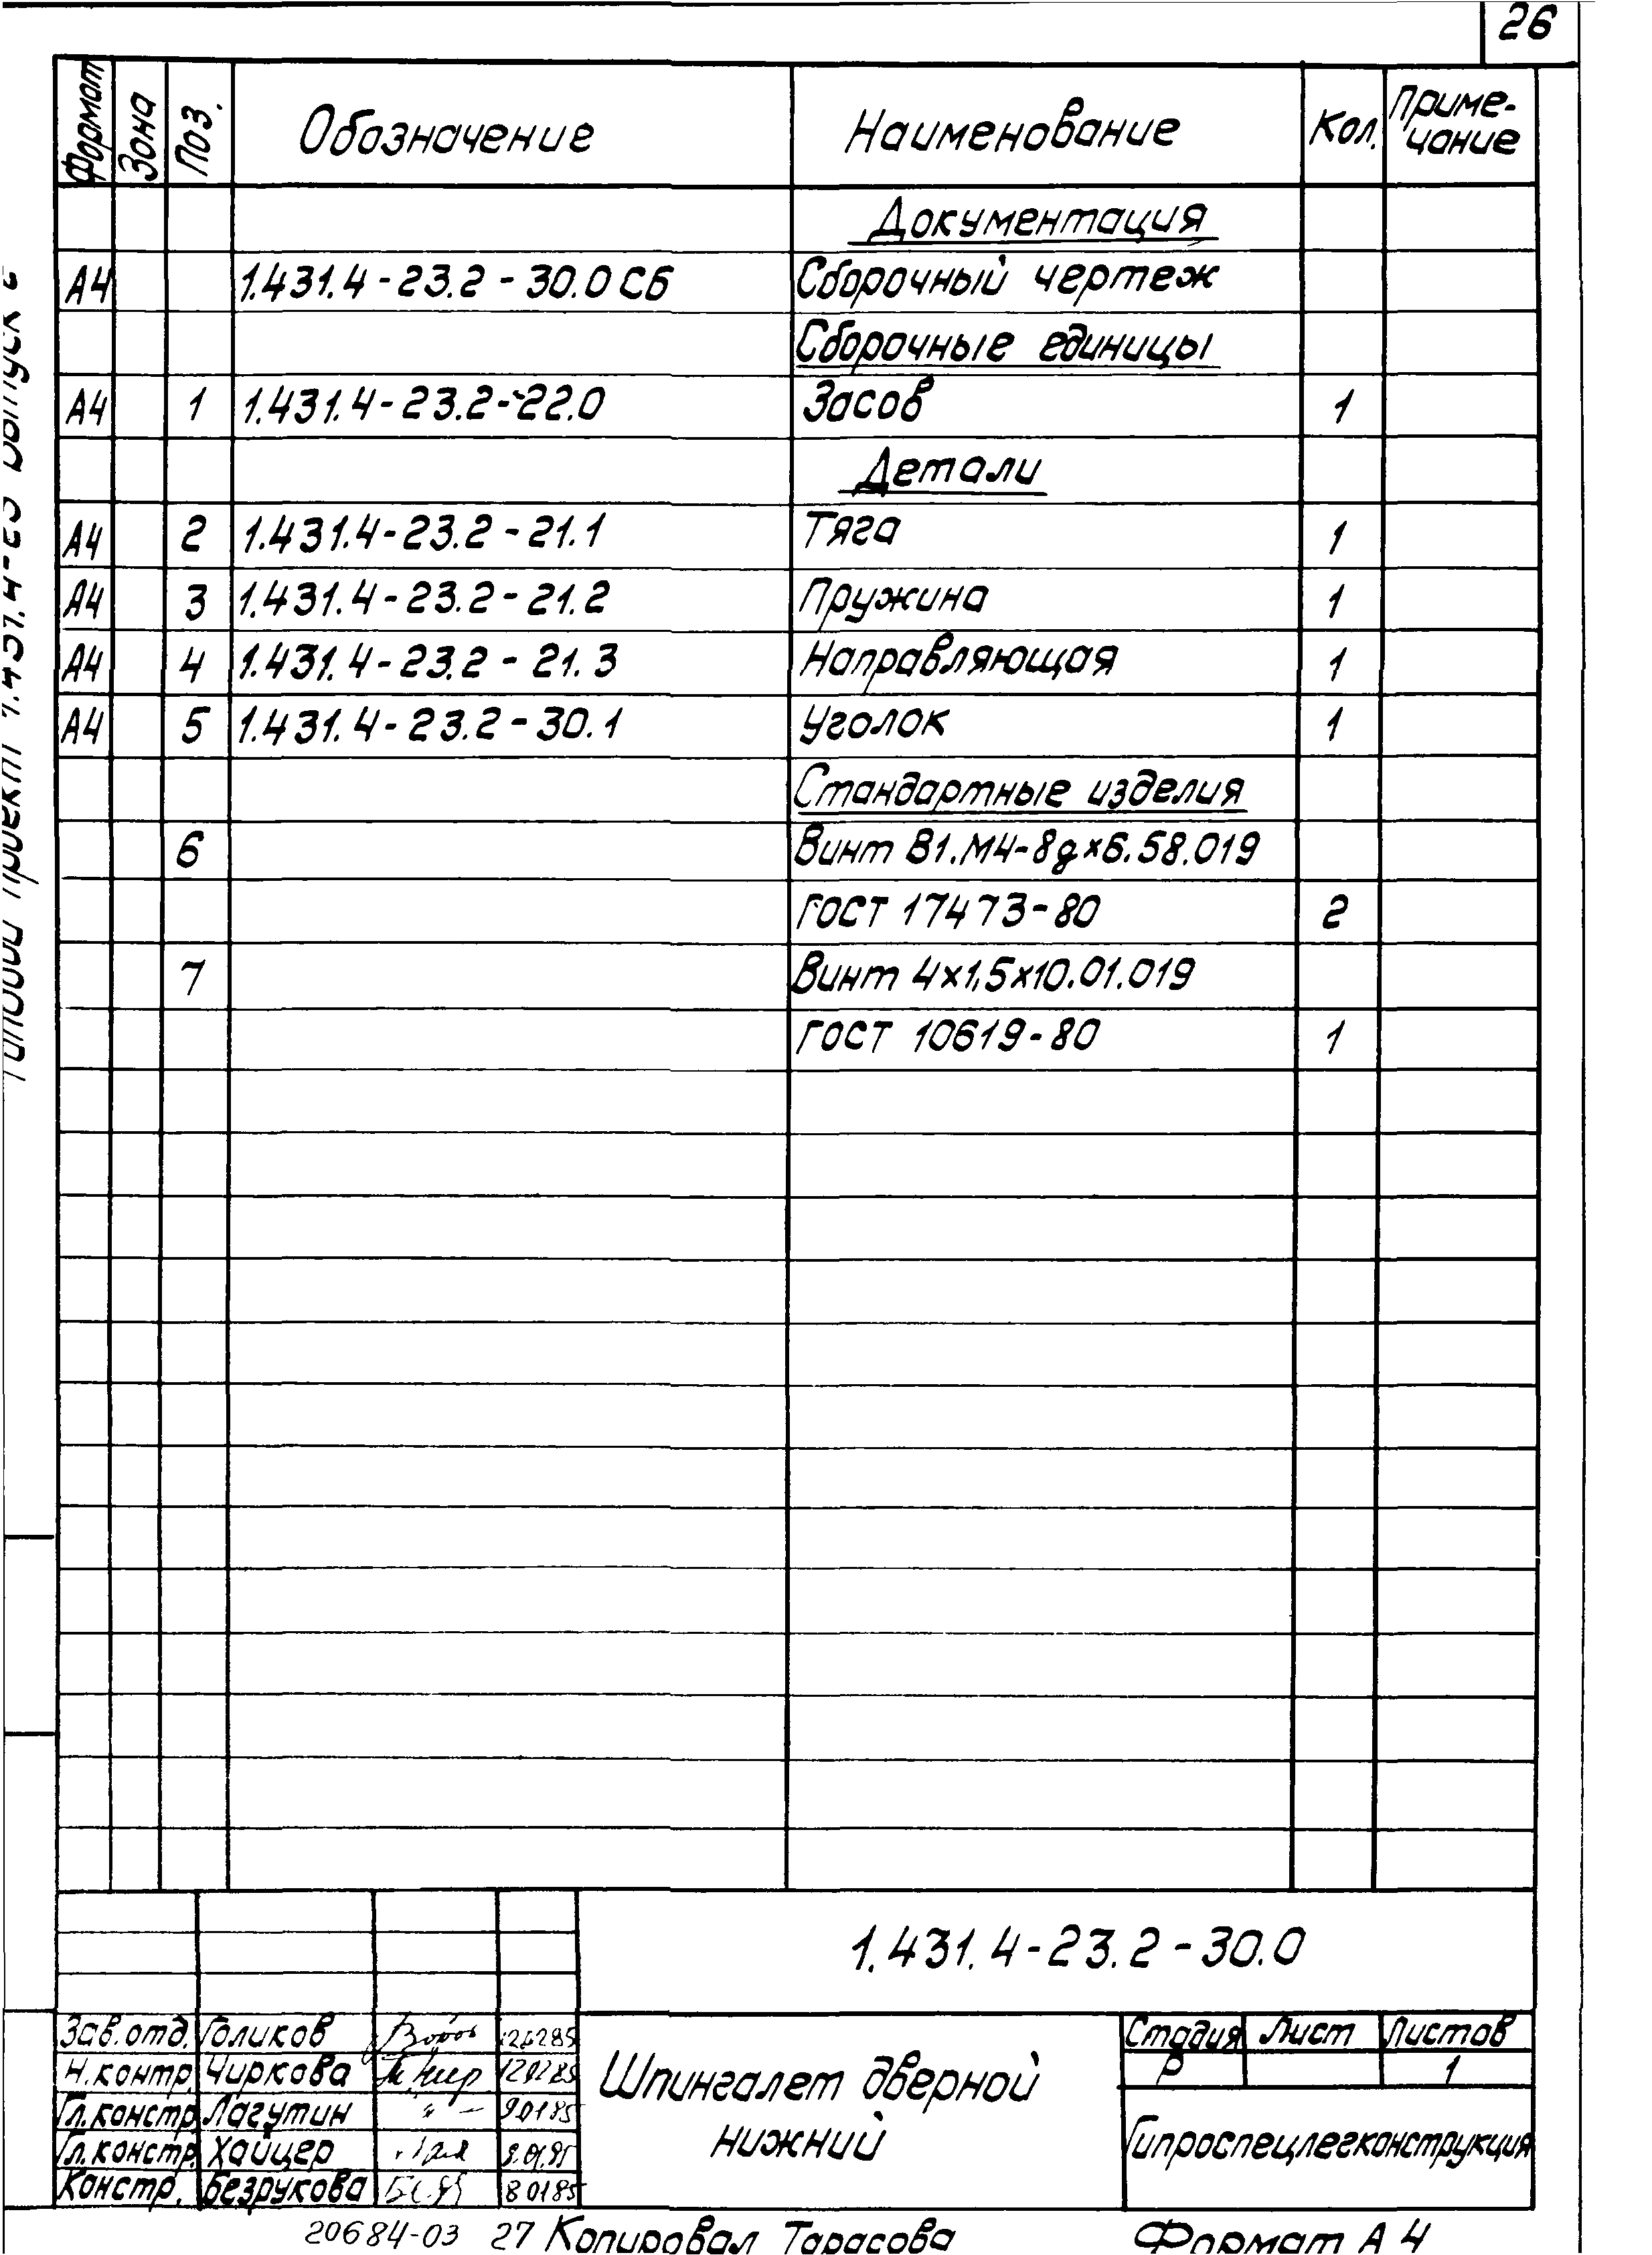 26
Формат Зона Поз. Обозначение Наименование Кол. Приме-
чание
Документация
А4 1.431.4-23.2-30.0 СБ Сборочный чертеж
Сборочные единицы
А4 1 1.431.4-23.2-22.0 Засов 1
Детали
А4 2 1.431.4-23.2-21.1 Тяга 1
А4 3 1.431.4-23.2-21.2 Пружина 1
А4 4 1.431.4-23.2-21.3 Направляющая 1
А4 5 1.431.4-23.2-30.1 Уголок 1
Стандартные изделия
6 Винт В1.М4-8gх6.58.019
ГОСТ 17473-80 2
7 Винт 4х1,5х10.01.019
ГОСТ 10619-80 1
Типовой проект 1.431.4-23 Выпуск
1.431.4-23.2-30.0
Зав. отд. Голиков
Н. контр. Чиркова 120285
Гл. констр. Лагутин 90185
Гл. констр. Хайцер 9.01.85
Констр. Безрукова 80185
Шпингалет дверной
нижний
Стадия Лист Листов
Р 1
Гипроспецлегконструкция
20684-03 27 Копировал Тарасова Формат А4